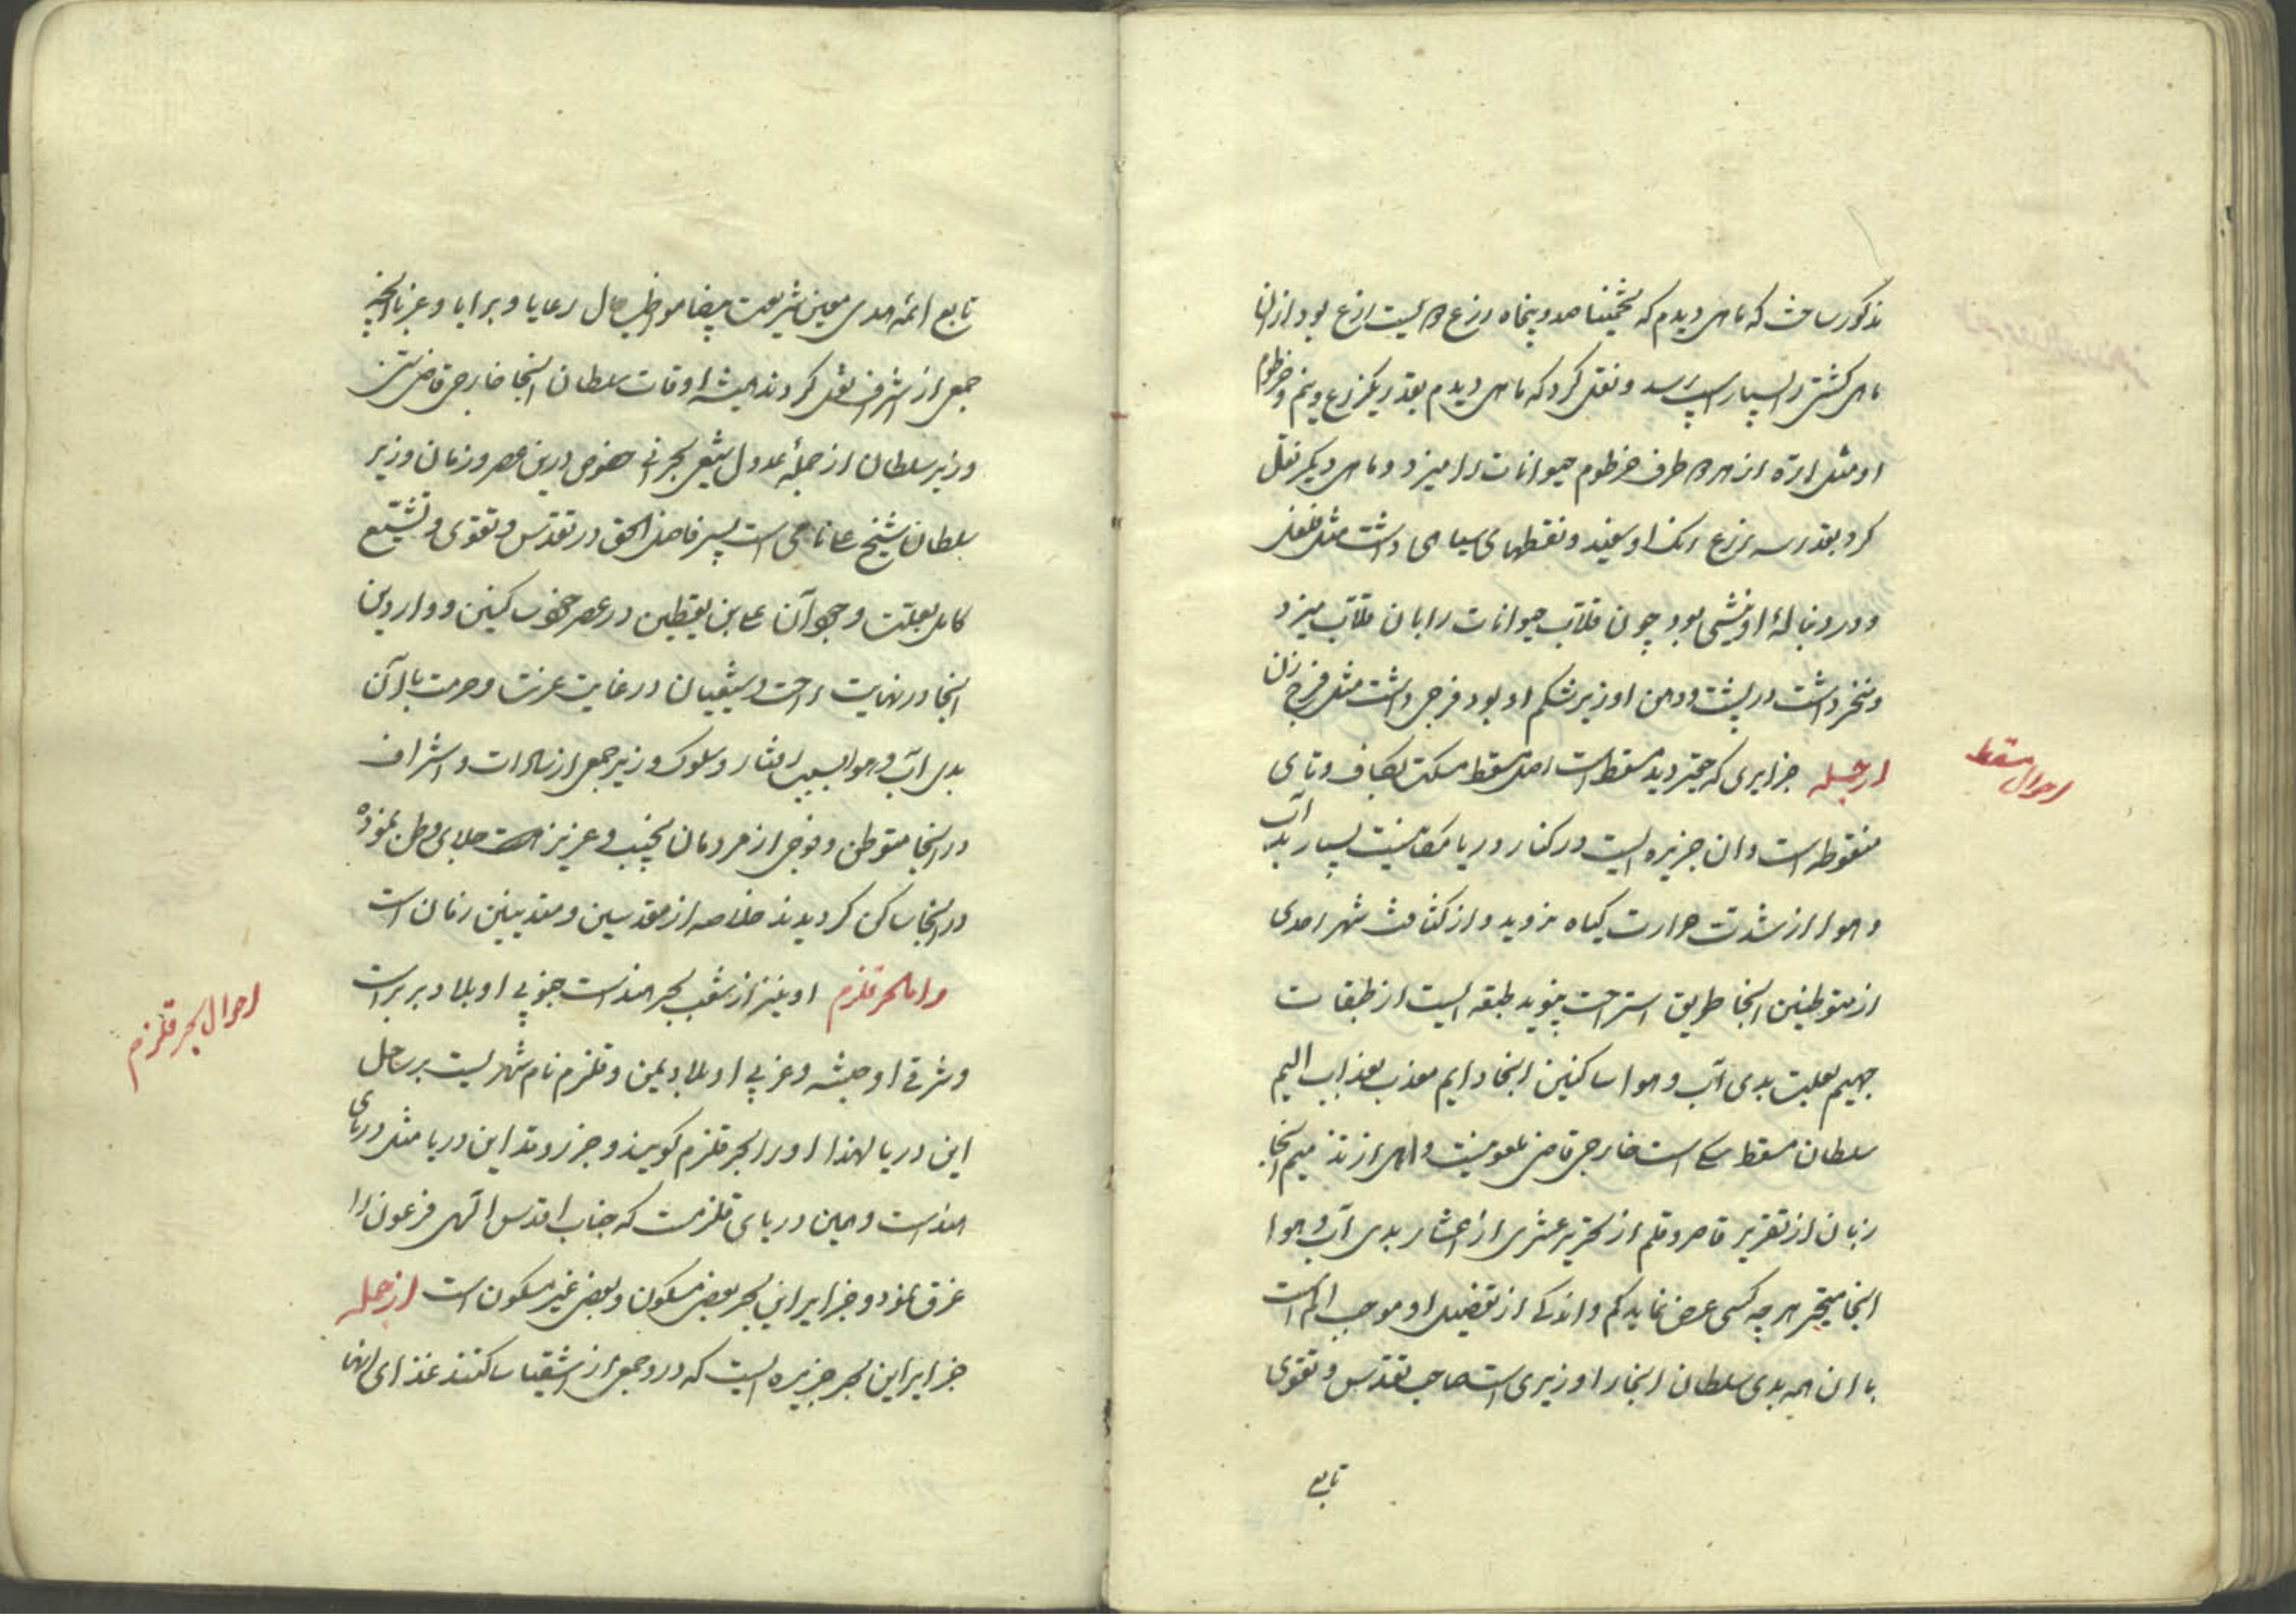 مذکور ساخت که ماهی دیدم که تخمینا صد و پنجاه درع و بیست ازع بود ازان
ماهی کشتی را بسیار آسیب رسد و نقل کرد که ماهی دیدم بقدر یکزرع و نیم و خرطوم
او مثل اره از هر دو طرف خرطوم حیوانات را میزد و ماهی دیکر نقل
کرد بقدر سه زرع رنک او سفید و نقطهای سیاهی داشت مثل فلفل
و در دنباله او نیشی بود چون قلاب حیوانات را بان قلاب میزد
و منخر داشت در پشت و دهن او زیر شکم او بود فرجی داشت مثل فرج زن
احوال مسقط
ازجمله جزایری که حقیر دید مسقط است اصل مسقط مسکت بکاف و تای
منقوطه است و ان جزیره ایست در کنار دریا مکانیست بسیار بد آب
و هوا از شدت حرارت کیاه نروید و از کثافت شهر احدی
از متوطنین انجا طریق استراحت نپوید طبقه ایست از طبقات
جهیم بعلت بدی آب و هوا ساکنین انجا دایم معذب بعذاب الیم
سلطان مسقط است خارجی قاضی ملعونیست و اهل از تذمیم انجا
زبان از تقریر قاصر و قلم از تحریر عشری از اعشار بدی آب و هوا
انجا متحیر هر چه کسی عرض نماید کم و اندکی از تفضیل او موجب الم است
با ان همه بدی سلطان انجا را وزیری است صاحب تقدس و تقوی
تابع
تابع ائمه هدی معین شریعت بیضا مواظب حال رعایا و برایا و غربا چنانچه
جمعی از اشراف نقل کردند همیشه اوقات سلطان انجا خارجی قاضی سنی
وزیر سلطان از جمله عدول شیعی بحرانی خصوص درین عصر و زمان وزیر
سلطان شیخ علی نامی است پسر فاضل الحق در تقدس و تقوی و تشیع
کامل بعلت وجود آن علی بن یقطین در عصر خوب کنین و واردین
انجا در نهایت راحت و شیعیان در غایت عزت و حرمت با آن
بدی آب و هوا بسبب رفتار و سلوک وزیر جمعی از سادات و اشراف
در انجا متوطن و فوجی از مردمان نجیب و عزیز است جلای وطن نموده
در انجا ساکن کردیدند خلاصه از مقدسین و متدینین زمان است
احوال بحر قلزم
و اما بحر قلزم او نیز از شعب بحر هند است جنوبی او بلاد بربر است
و شرقی او حبشه و غربی او بلاد یمن و قلزم نام شهریست بر ساحل
این دریا لهذا او را بحر قلزم کویند و جزر و مد این دریا مثل دریای
هند است و همین دریای قلزمست که جناب اقدس الهی فرعون را
غرق نمود و جزایر این بحر بعضی مسکون و بعضی غیر مسکون است ازجمله
جزایر این بحر جزیره ایست که در و جمعی از اشقیا ساکنند غذای انها